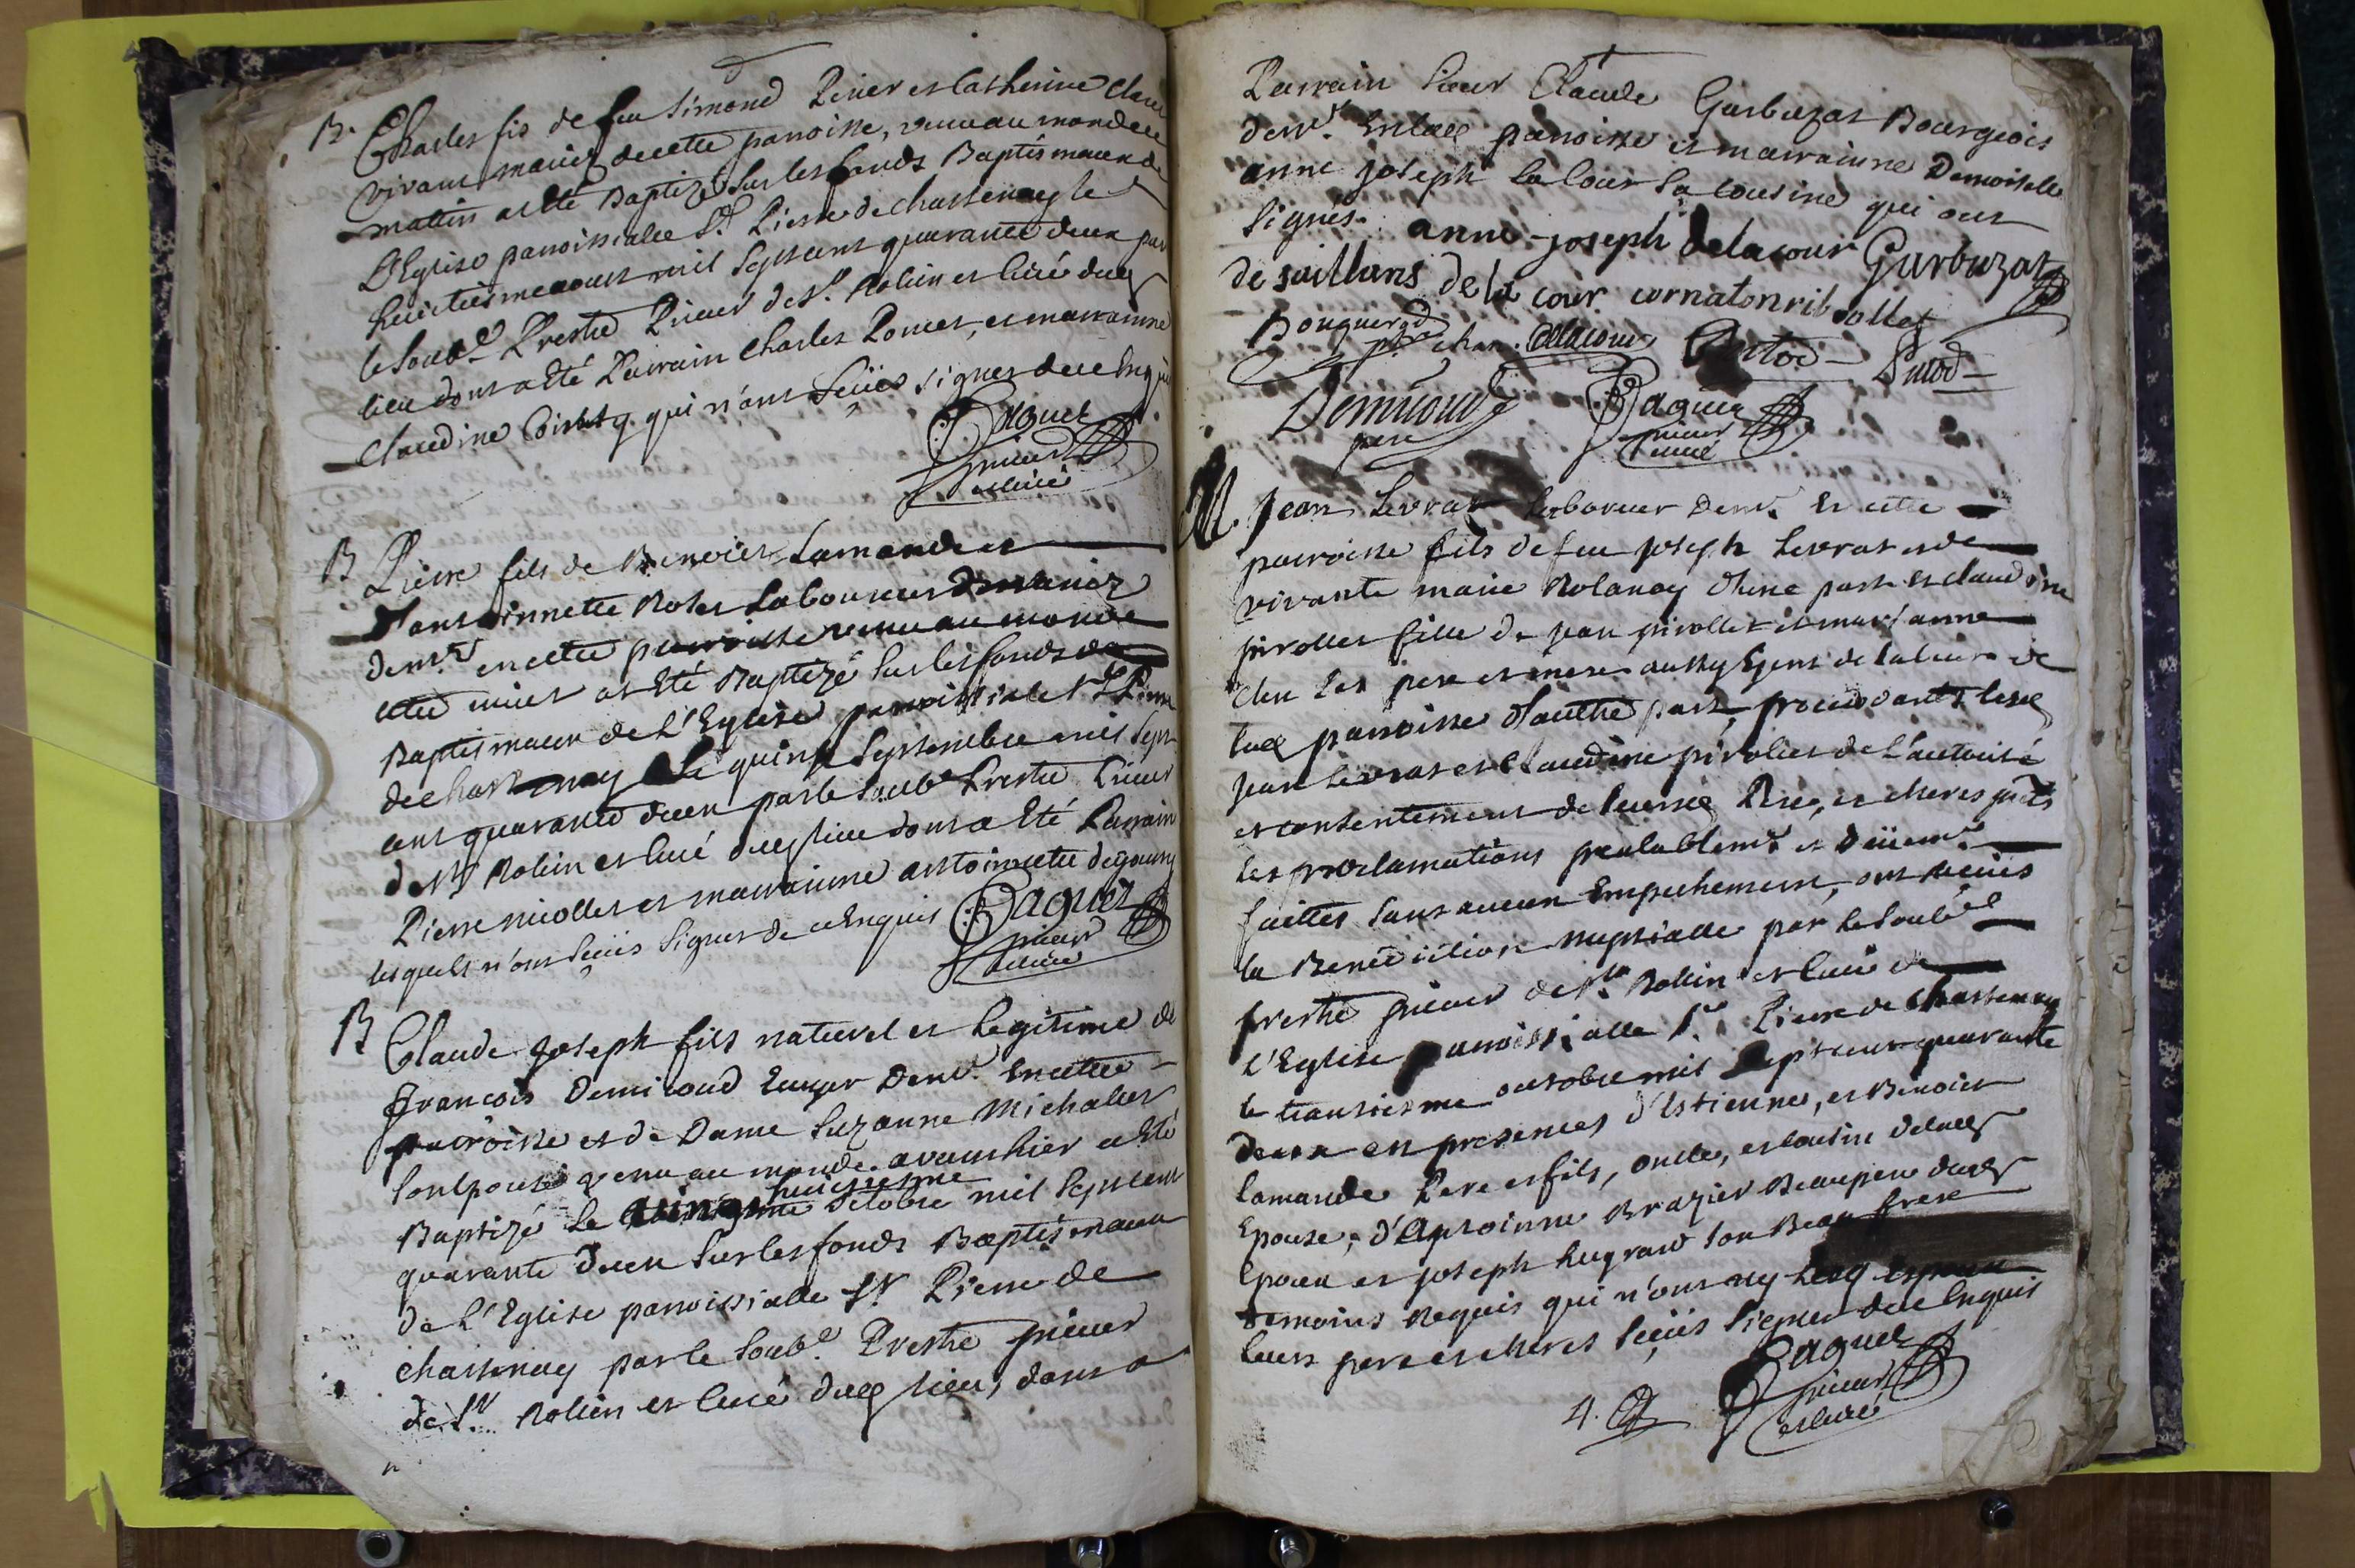 B. Charles fis de feu Simond Perier et Catherine
vivant mariez de cette paroisse, venu au monde ce
mattin at été Baptizé sur les fonds Baptismaux de
L'Eglise paroissialle St. Pierre de chassenay le
huictiesme aoust mil septcent quarante deux par
le soubé Prestre Prieur de St. Rolin et Curé dud
lieu dont a été Parrain Charles Poncet, et marrainne
Claudine qui n'ont sçüës signer de ce Enquis
Baguet
prieur
et curé
B Pierre fils de Benoist Lamande et
d'anthoinnette Rolet Laboureurs mariez
demt en cette parroisse venu au monde
cette nuict at Eté Baptizé sur les fonds
Baptismaux de L'Eglise paroissiale St Pierre
de chassenay Le quinze Septembre mil sept
cent quarante deux par le soubé Prestre Prieur
de St Rolin et Curé dud lieu dont a Eté Parrain
Pierre nicollet et marrainne antoinnette
lesquels n'ont sçüës signer de ce Enquis Baguet
prieur
et curé
B Claude Joseph fils naturel et Legitime de
François Demicoud Ecuyer Demt. En cette
parroisse et de Dame Suzanne Michalet
son Epouse venu au monde avanthier at Eté
huictiesme
Baptizé Le octobre mil septcent
quarante deux sur les fonds Baptismaux
de L'Eglise parroissialle St. Pierre de
chassenay par le soubé. Prestre prieur
de St. Rolin et Curé dud lieu, dont a
Parrain Sieur Claude Garbuzat Bourgeois
demt. En lad parroisse et marrainne Demoiselle
anne joseph la Cour sa cousine qui ont
signés. anne-joseph delacour Garbuzat
de saillans de la cour cornaton ribollet
Bouquerod
ptre chan. delacour
Demicoud Baguet
pere prieur
et curé
M. Jean Levrat Laboureur Demt. En cette
parroisse fils de feu joseph Levrat et de
vivante marie Rolanay d'une part et claudine
pirollet fille de jean pirollet et marianne
clu ses pere et mere aussy Egens de Labeure de
lad parroisse d'autre part, procedants lesd
jean Levrat et Claudine pirollet de L'autorité
et consentement de leursd Pere, et meres
les proclamations prealablemt et düemt
faittes sans aucun Empechement, ont recüs
la Benediction nuptialle par le soubé
prestre prieur de St. Rollin et Curé de
L'Eglise parroissialle St. Pierre de chassenay
le troisiesme octobre mil sept cent quarante
deux en presences d'Estienne, et Benoist
Lamande Pere et fils, oncle, et cousin de lad
Epouse, d'Antoinne Brazier Beaupere dud
Epoux et joseph hugrand son Beau frere
temoins Requis qui n'ont ny lesd Epoux
leurs pere et meres sçüës signer de ce Enquis
Baguet
prieur
et curé
4.